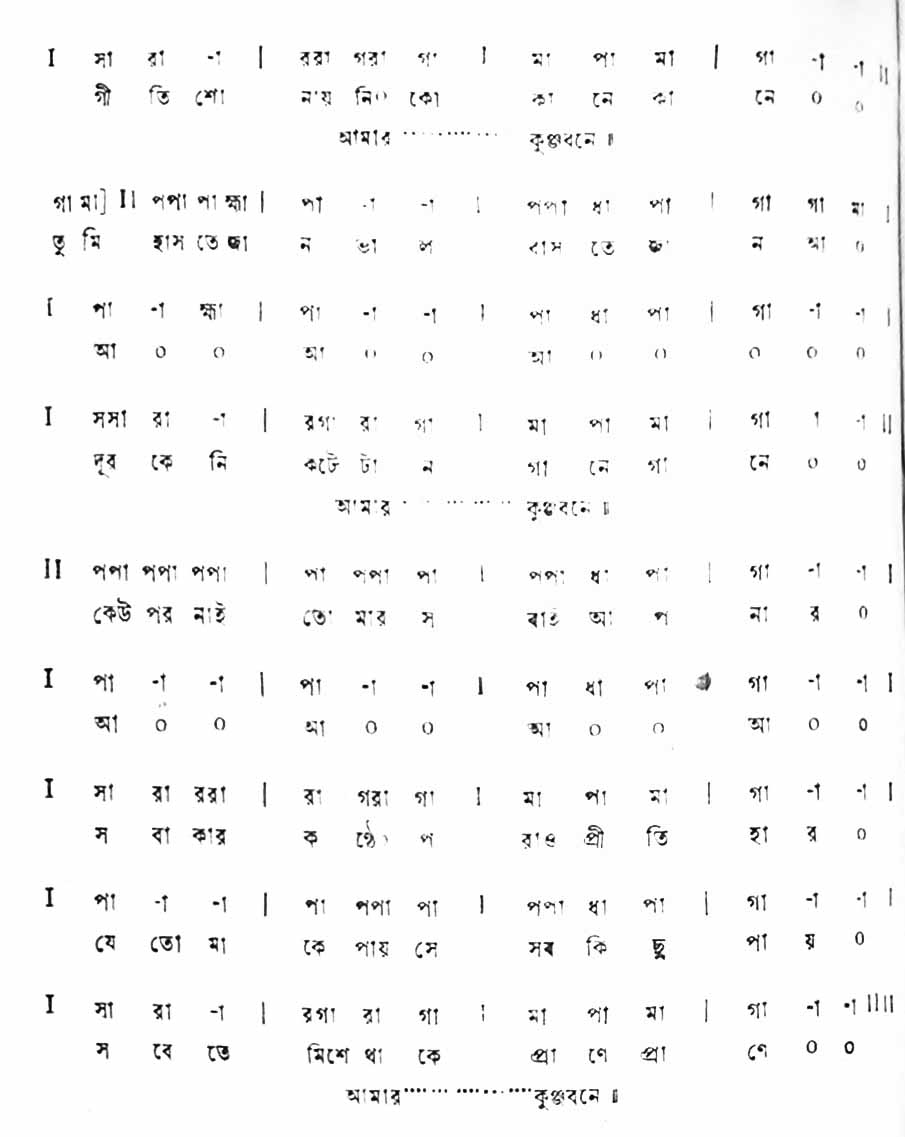 I সা রা -া | ররা গরা গা I মা পা মা | গা -া -া II
গী তি শো নায় নি০ কো কা নে কা নে ০ ০
আমার ············ কুঞ্জবনে ॥
গা মা] II পপা পা হ্মা | পা -া -া I পপা ধা পা | গা গা মা I
তু মি হাস তে জা ন ভা ল বাস তে জা ন আ ০
I পা -া হ্মা | পা -া -া I পা ধা পা | গা -া -া I
আ ০ ০ আ ০ ০ আ ০ ০ ০ ০ ০
I সসা রা -া | রগা রা গা I মা পা মা | গা া -া II
দূর কে নি কটে টা ন গা নে গা নে ০ ০
আমার ············ কুঞ্জবনে ॥
II পপা পপা পপা | পা পপা পা I পপা ধা পা | গা -া -া I
কেউ পর নাই তো মার স বাই আ প না র ০
I পা -া -া | পা -া -া I পা ধা পা | গা -া -া I
আ ০ ০ আ ০ ০ আ ০ ০ আ ০ ০
I সা রা ররা | রা গরা গা I মা পা মা | গা -া -া I
স বা কার ক ণ্ঠে০ প রাও প্রী তি হা র ০
I পা -া -া | পা পপা পা I পপা ধা পা | গা -া -া I
যে তো মা কে পায় সে সব কি ছু পা য় ০
I সা রা -া | রগা রা গা I মা পা মা | গা -া -া IIII
স বে তে মিশে থা কে প্রা ণে প্রা ণে ০ ০
আমার ············ কুঞ্জবনে ॥